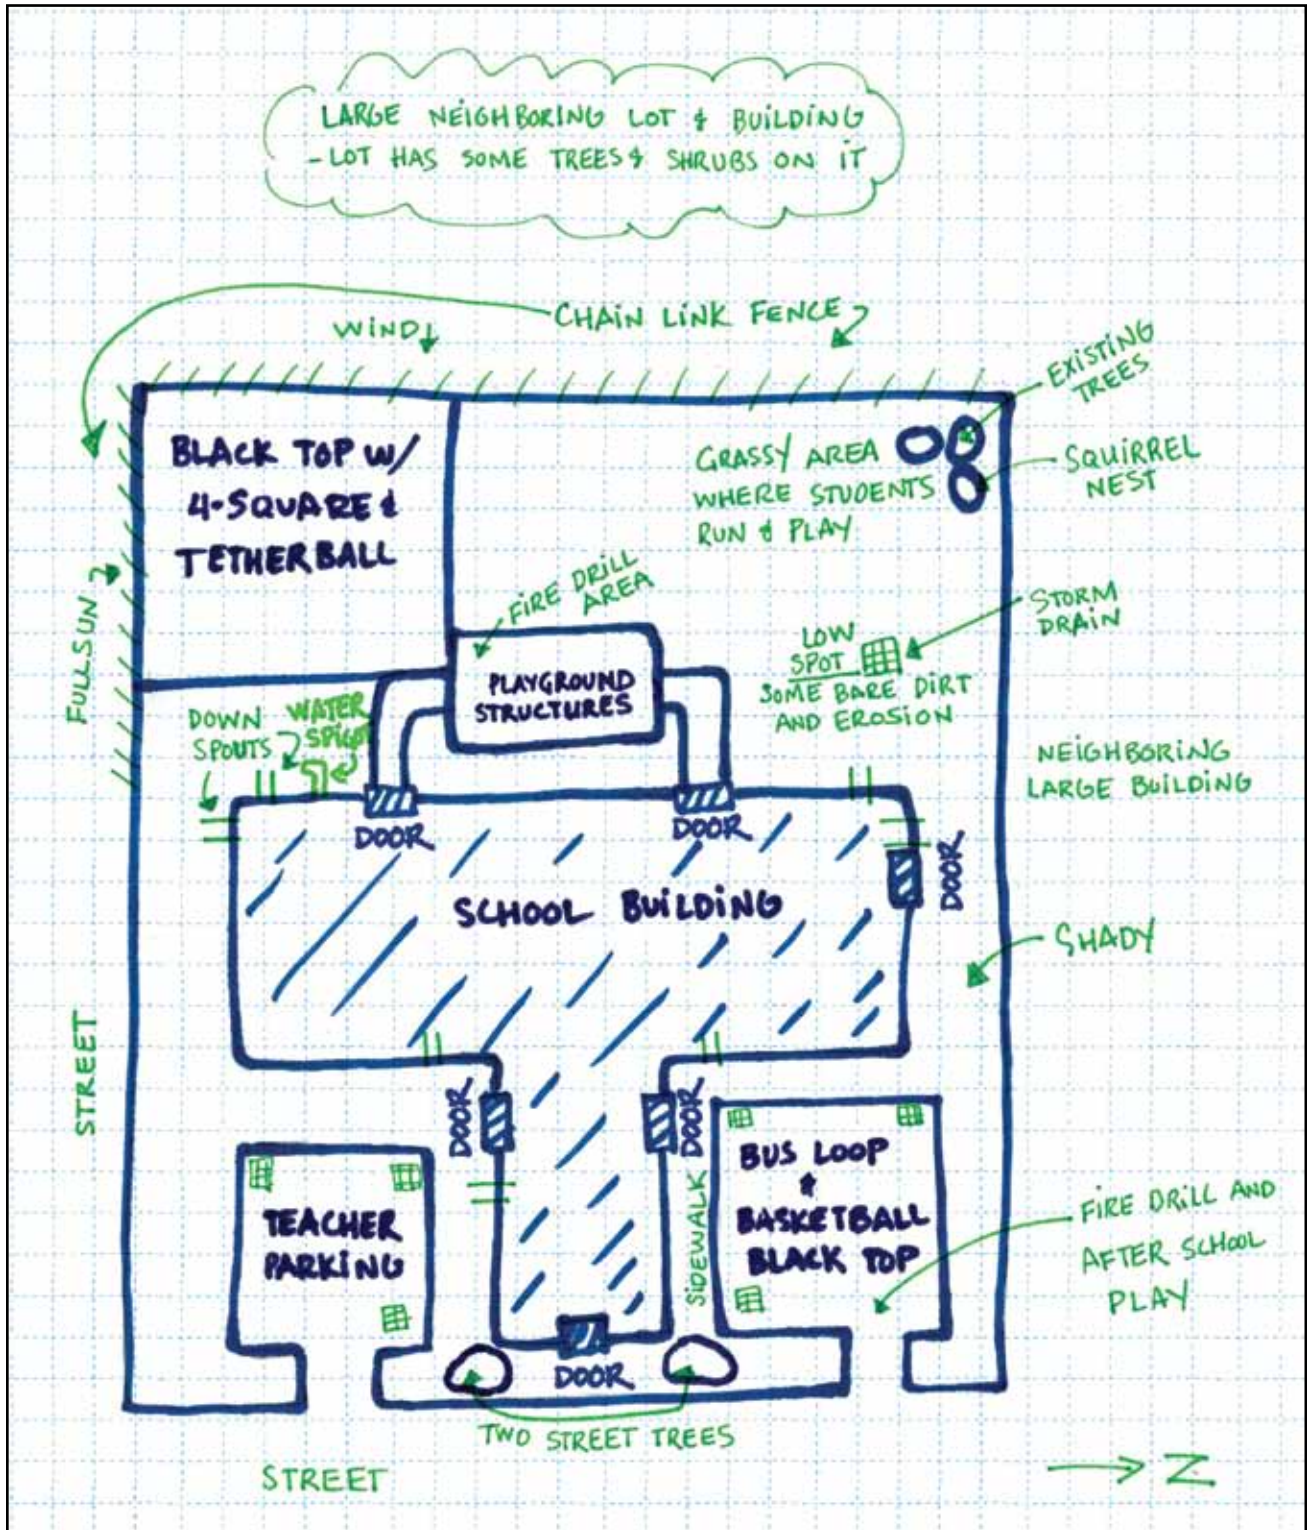 LARGE NEIGHBORING LOT & BUILDING
- LOT HAS SOME TREES & SHRUBS ON IT
CHAIN LINK FENCE
WIND
EXISTING
TREES
BLACK TOP W/
4-SQUARE &
TETHERBALL
GRASSY AREA
WHERE STUDENTS
RUN & PLAY
SQUIRREL
NEST
FIRE DRILL
AREA
FULL SUN
STORM
DRAIN
LOW
SPOT
SOME BARE DIRT
AND EROSION
PLAYGROUND
STRUCTURES
DOWN
SPOUTS
WATER
SPIGOT
NEIGHBORING
LARGE BUILDING
DOOR
DOOR
DOOR
SCHOOL BUILDING
SHADY
STREET
DOOR
DOOR
BUS LOOP
&
BASKETBALL
BLACK TOP
TEACHER
PARKING
SIDEWALK
FIRE DRILL AND
AFTER SCHOOL
PLAY
DOOR
TWO STREET TREES
STREET
Z